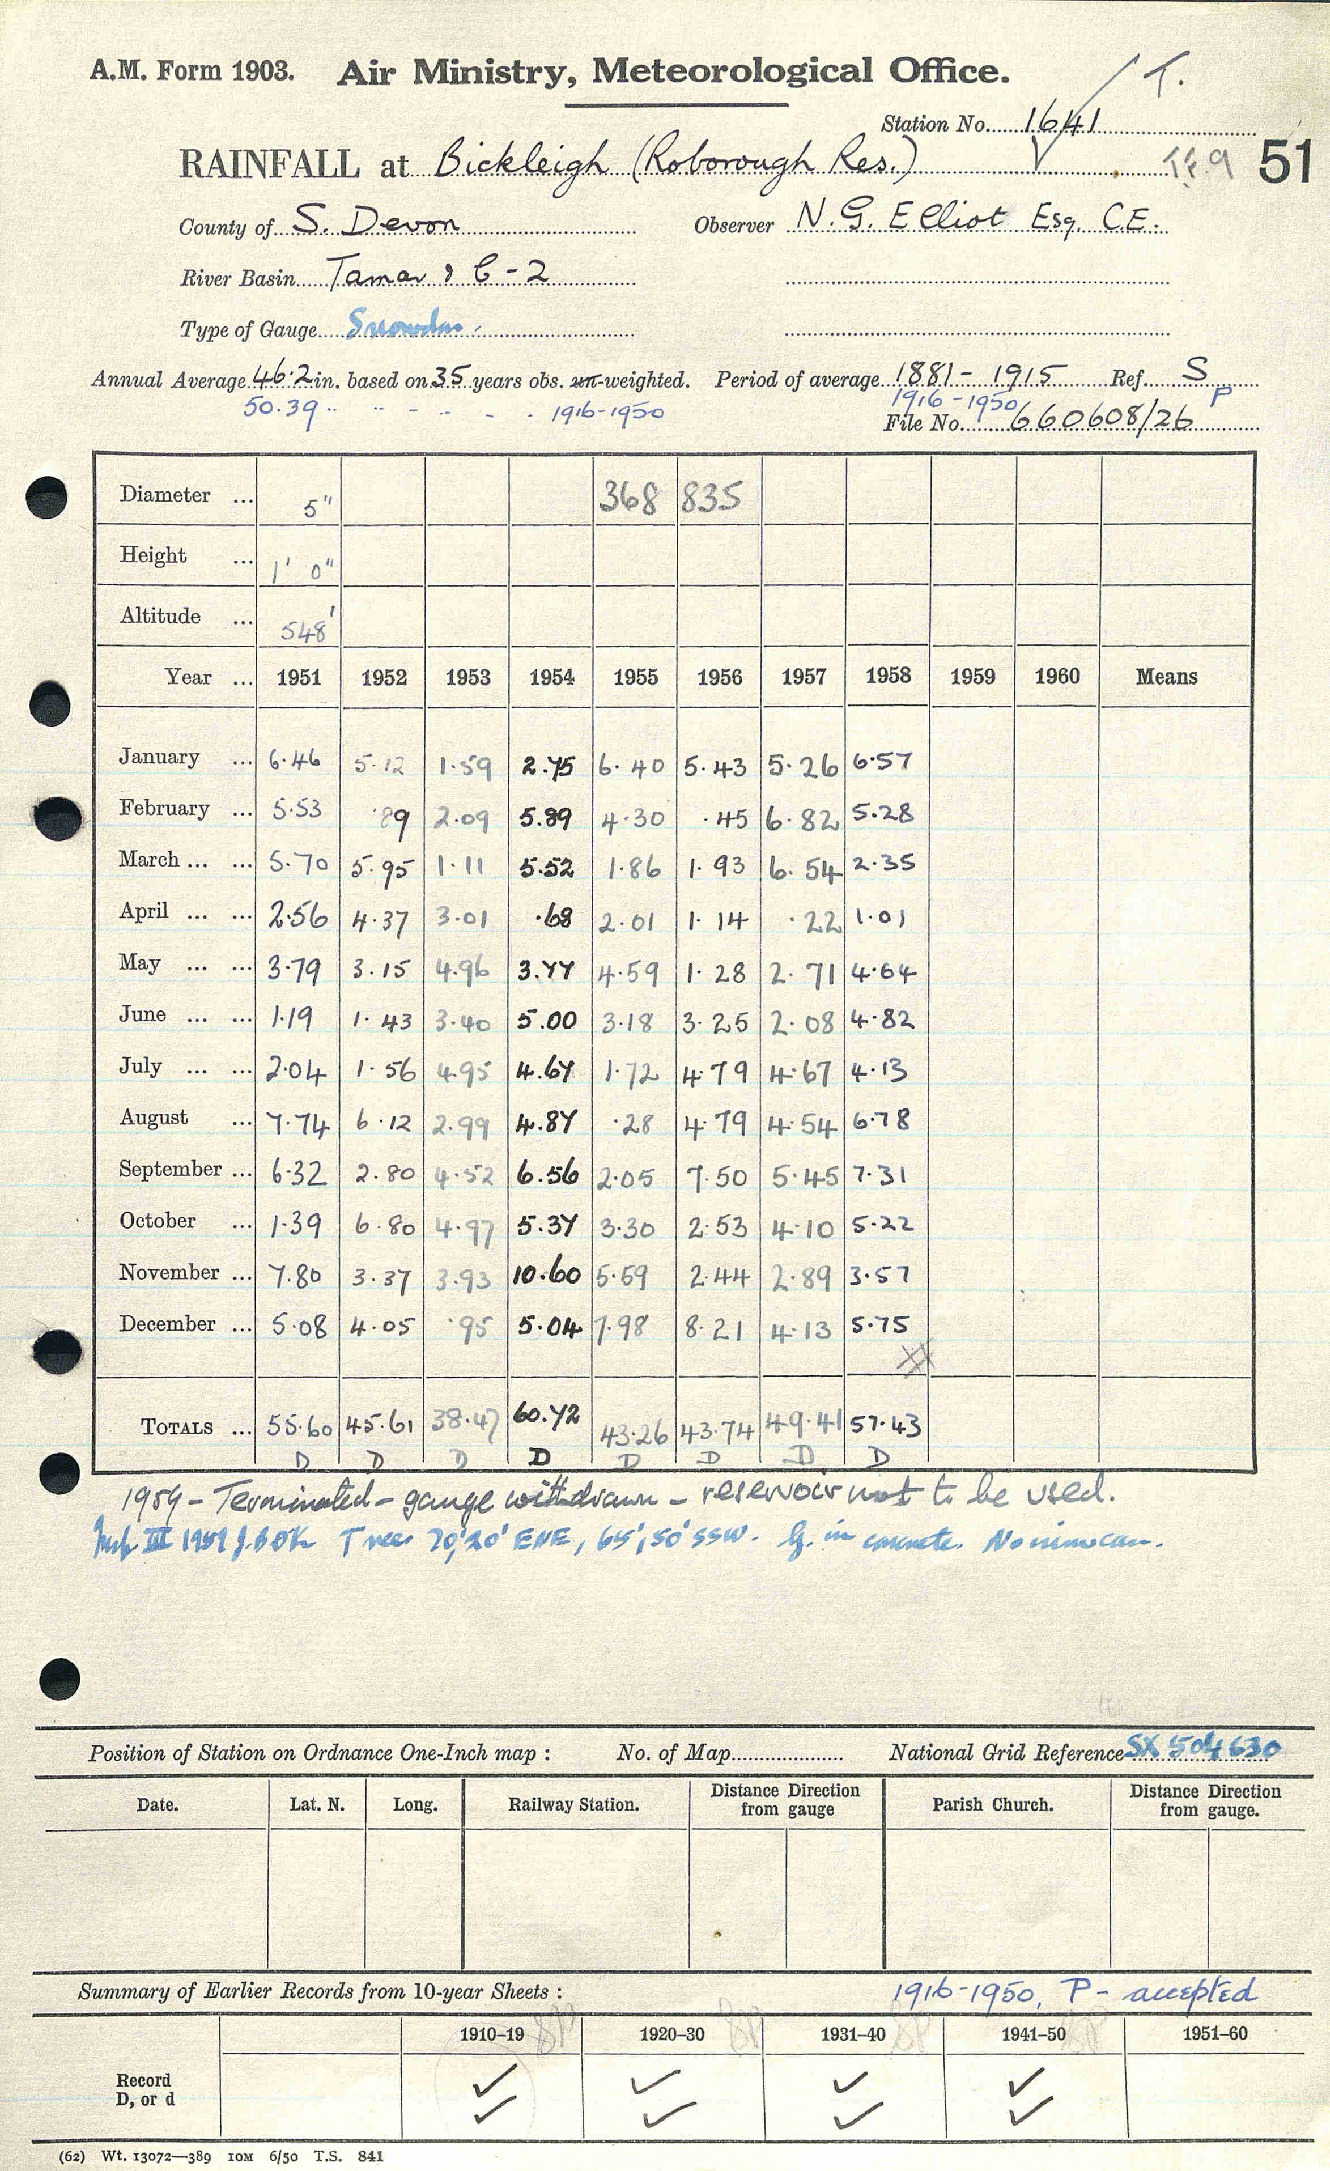 A.M. Form 1903. Air Ministry, Meteorological Office. T.
Station No. 1641
RAINFALL at Bickleigh (Roborough Res.) T.F.9 51
County of S. Devon Observer N. G. Elliot Esq. C.E.
River Basin Tamar & C-2
Type of Gauge Snowdon
Annual Average 46.2 in. based on 35 years obs. un-weighted. Period of average 1881 - 1915 Ref. S
50.39 " " - - - - 1916-1950 1916-1950 P
File No. 660608/26
Diameter ... 5" 368 835
Height ... 1' 0"
Altitude ... 548'
Year ... 1951 1952 1953 1954 1955 1956 1957 1958 1959 1960 Means
January ... 6.46 5.12 1.59 2.75 6.40 5.43 5.26 6.57
February ... 5.53 .89 2.09 5.89 4.30 .45 6.82 5.28
March ... ... 5.70 5.95 1.11 5.52 1.86 1.93 6.54 2.35
April ... ... 2.56 4.37 3.01 .68 2.01 1.14 .22 1.01
May ... ... 3.79 3.15 4.96 3.77 4.59 1.28 2.71 4.64
June ... ... 1.19 1.43 3.40 5.00 3.18 3.25 2.08 4.82
July ... ... 2.04 1.56 4.95 4.67 1.72 4.79 4.67 4.13
August ... 7.74 6.12 2.99 4.87 .28 4.79 4.54 6.78
September ... 6.32 2.80 4.52 6.56 2.05 7.50 5.45 7.31
October ... 1.39 6.80 4.97 5.37 3.30 2.53 4.10 5.22
November ... 7.80 3.37 3.93 10.60 5.59 2.44 2.89 3.57
December ... 5.08 4.05 .95 5.04 7.98 8.21 4.13 5.75
TOTALS ... 55.60 45.61 38.47 60.72 43.26 43.74 49.41 57.43
D D D D D D D D
1959 - Terminated - gauge withdrawn - reservoir not to be used.
III 1959 Trees 70', 20' ENE, 65', 50' SSW. G. in concrete. No
Position of Station on Ordnance One-Inch map : No. of Map National Grid Reference SX 504 630
Date. Lat. N. Long. Railway Station. Distance from gauge Direction Parish Church. Distance from gauge. Direction
Summary of Earlier Records from 10-year Sheets : 1916-1950. P - accepted
1910–19 1920–30 1931–40 1941–50 1951–60
Record ✓ ✓ ✓ ✓
D, or d ✓ ✓ ✓ ✓
(62) Wt. 13072—389 10M 6/50 T.S. 841